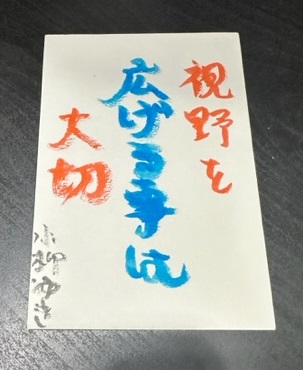 視野を
広げる事は
大切
小柳ゆき